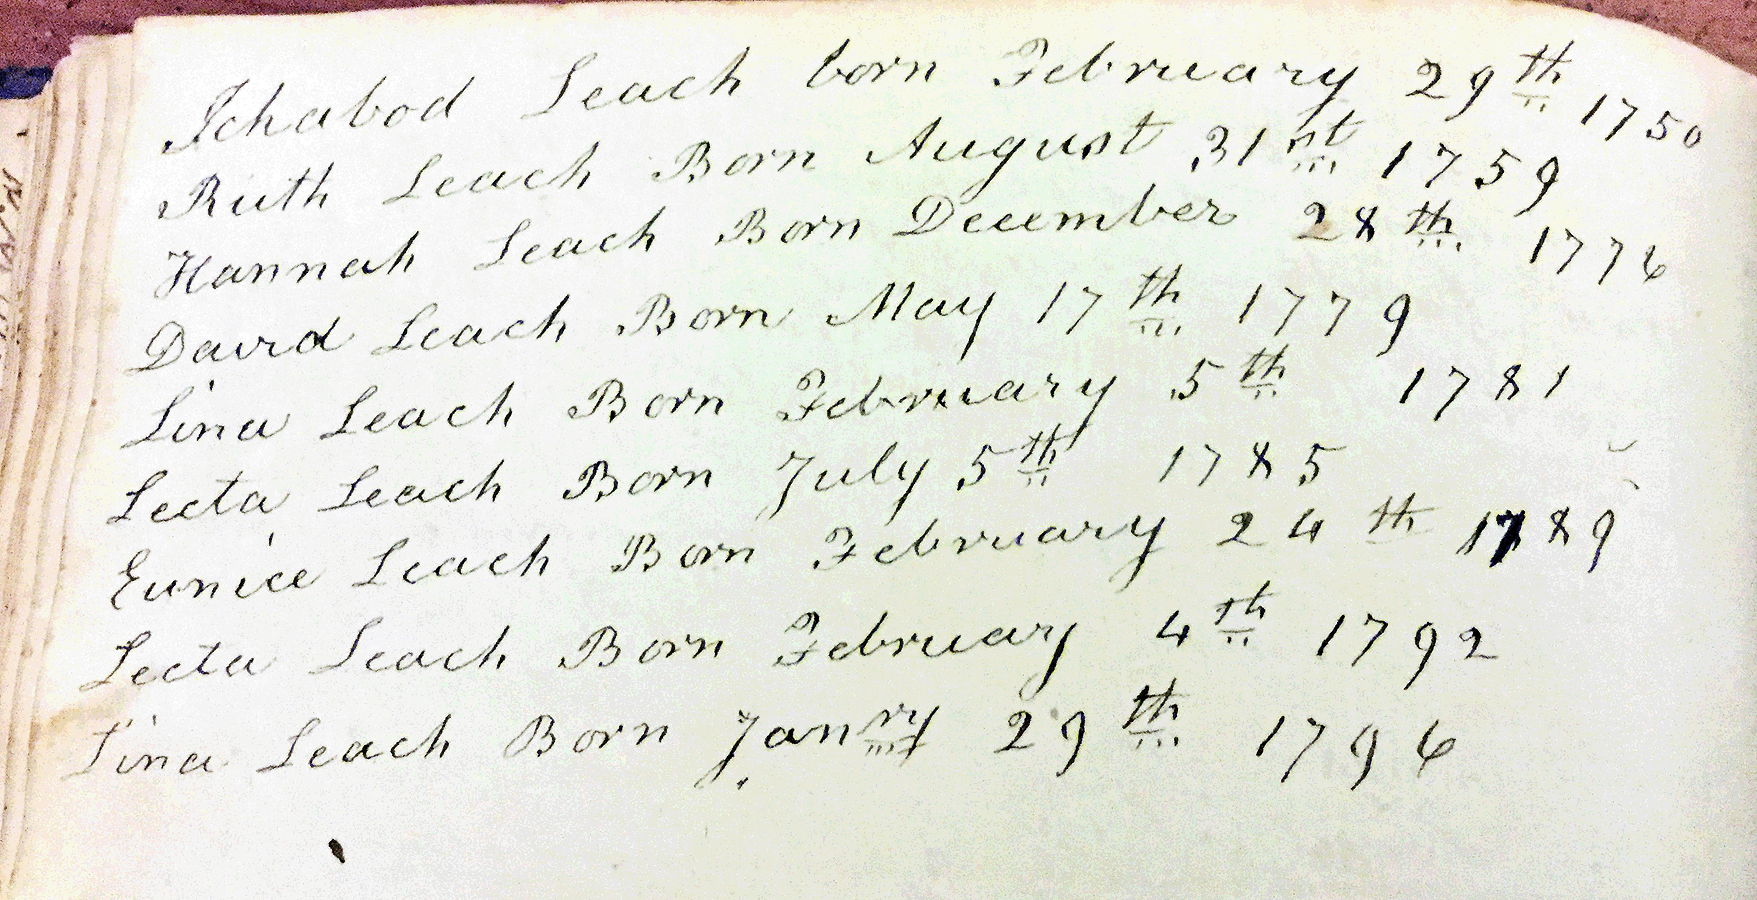 Ichabod Leach born February 29th 1750
Ruth Leach Born August 31st 1759
Hannah Leach Born December 28th 1776
David Leach Born May 17th 1779
Lina Leach Born February 5th 1781
Lecta Leach Born July 5th 1785
Eunice Leach Born February 24th 1789
Lecta Leach Born February 4th 1792
Lina Leach Born Janry 29th 1796